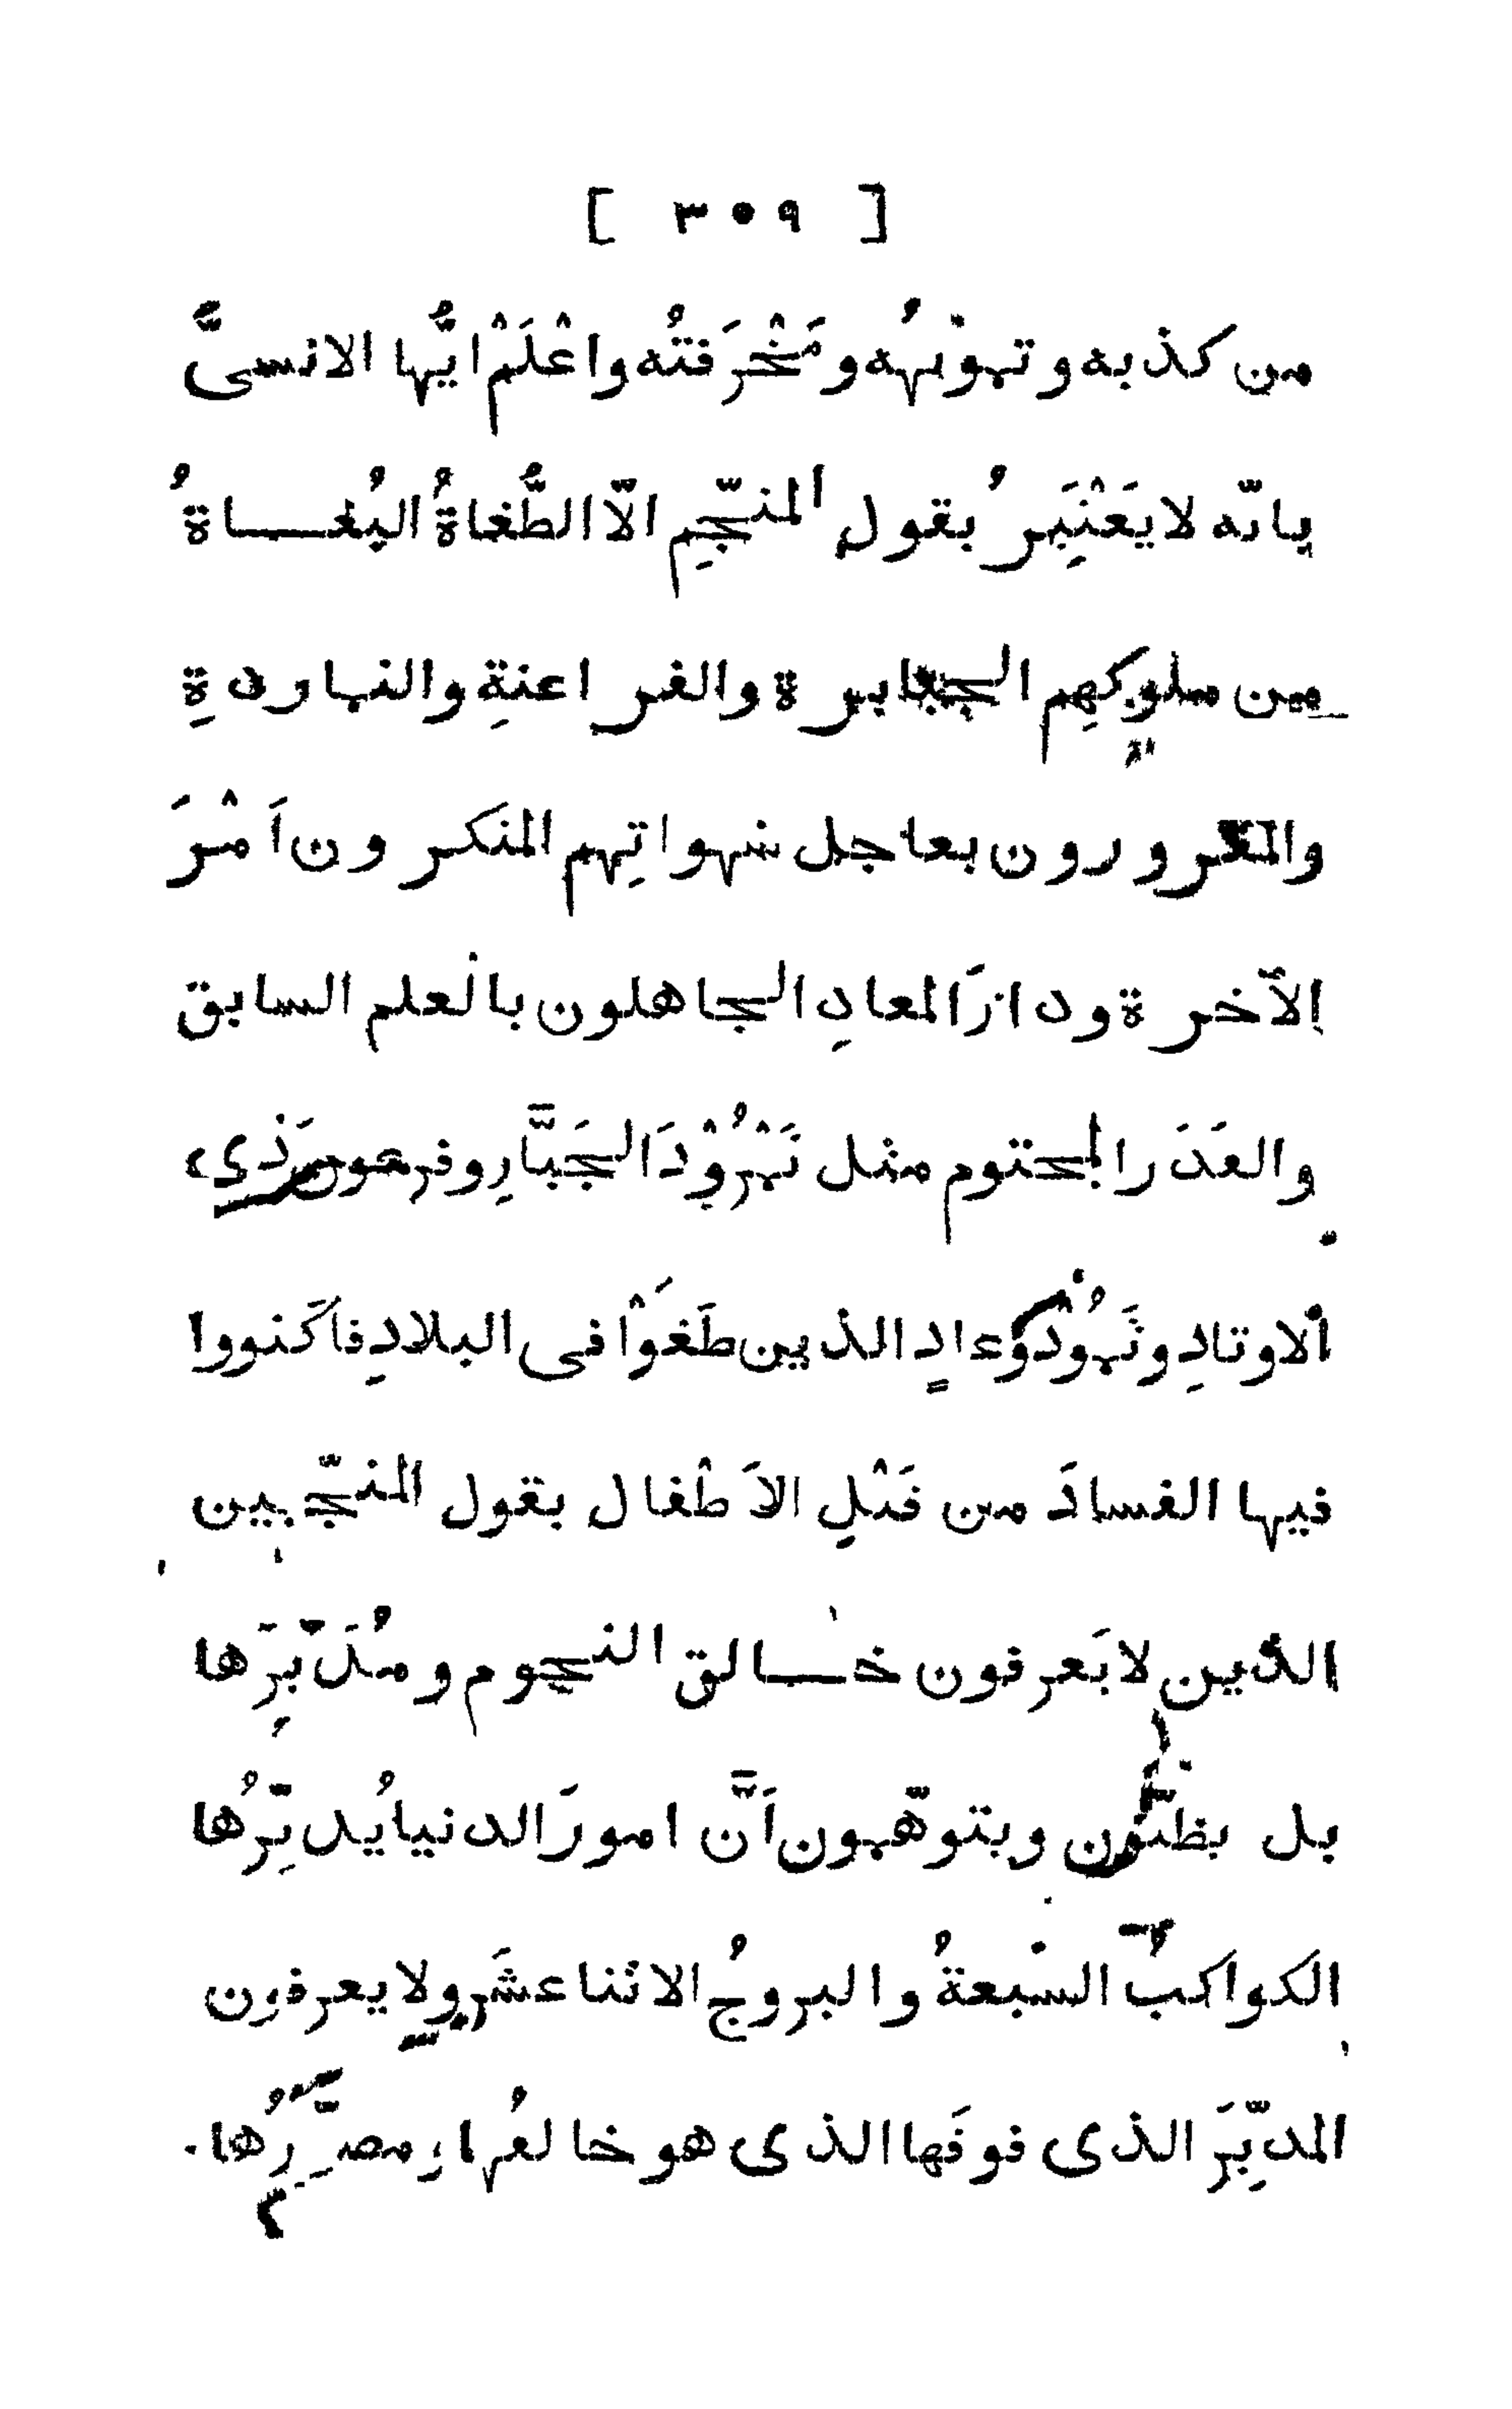 [ ٣٠٩ ]
من كذبه وتمويهُه ومَخْرَقتُه واعْلَمْ ايُّها الانسىُّ
بانّه لا يَغْتَبِرُ بقول المنجّمِ الّا الطُّغاةُ البُغاةُ
من ملوكِهِم الجبابرة والفراعنةِ والنماردةِ
والمغرورون بعاجل شهواتِهم المنكرون اَمْرَ
الآخرة ودارَ المعادِ الجاهلون بالعلم السابق
والقَدَر المحتوم مثل نَمْرُوْدَ الجَبَّارِ وفرعون ذِى
الاوتادِ وثَمُوْدَ وعادٍ الذين طَغَوْا فى البلادِ فاكَثروا
فيها الفسادَ من قَتْلِ الاَطْفال بقول المنجّمين
الذين لا يَعرفون خالق النجوم ومُدَبِّرَها
بل يظنّون ويتوهّمون اَنَّ امورَ الدنيا يُدبِّرُها
الكواكبُ السْبعةُ والبروجُ الاثنا عشَر ولا يعرفون
المدبِّرَ الذى فوقَها الذى هو خالقُها ومصَوِّرُها.